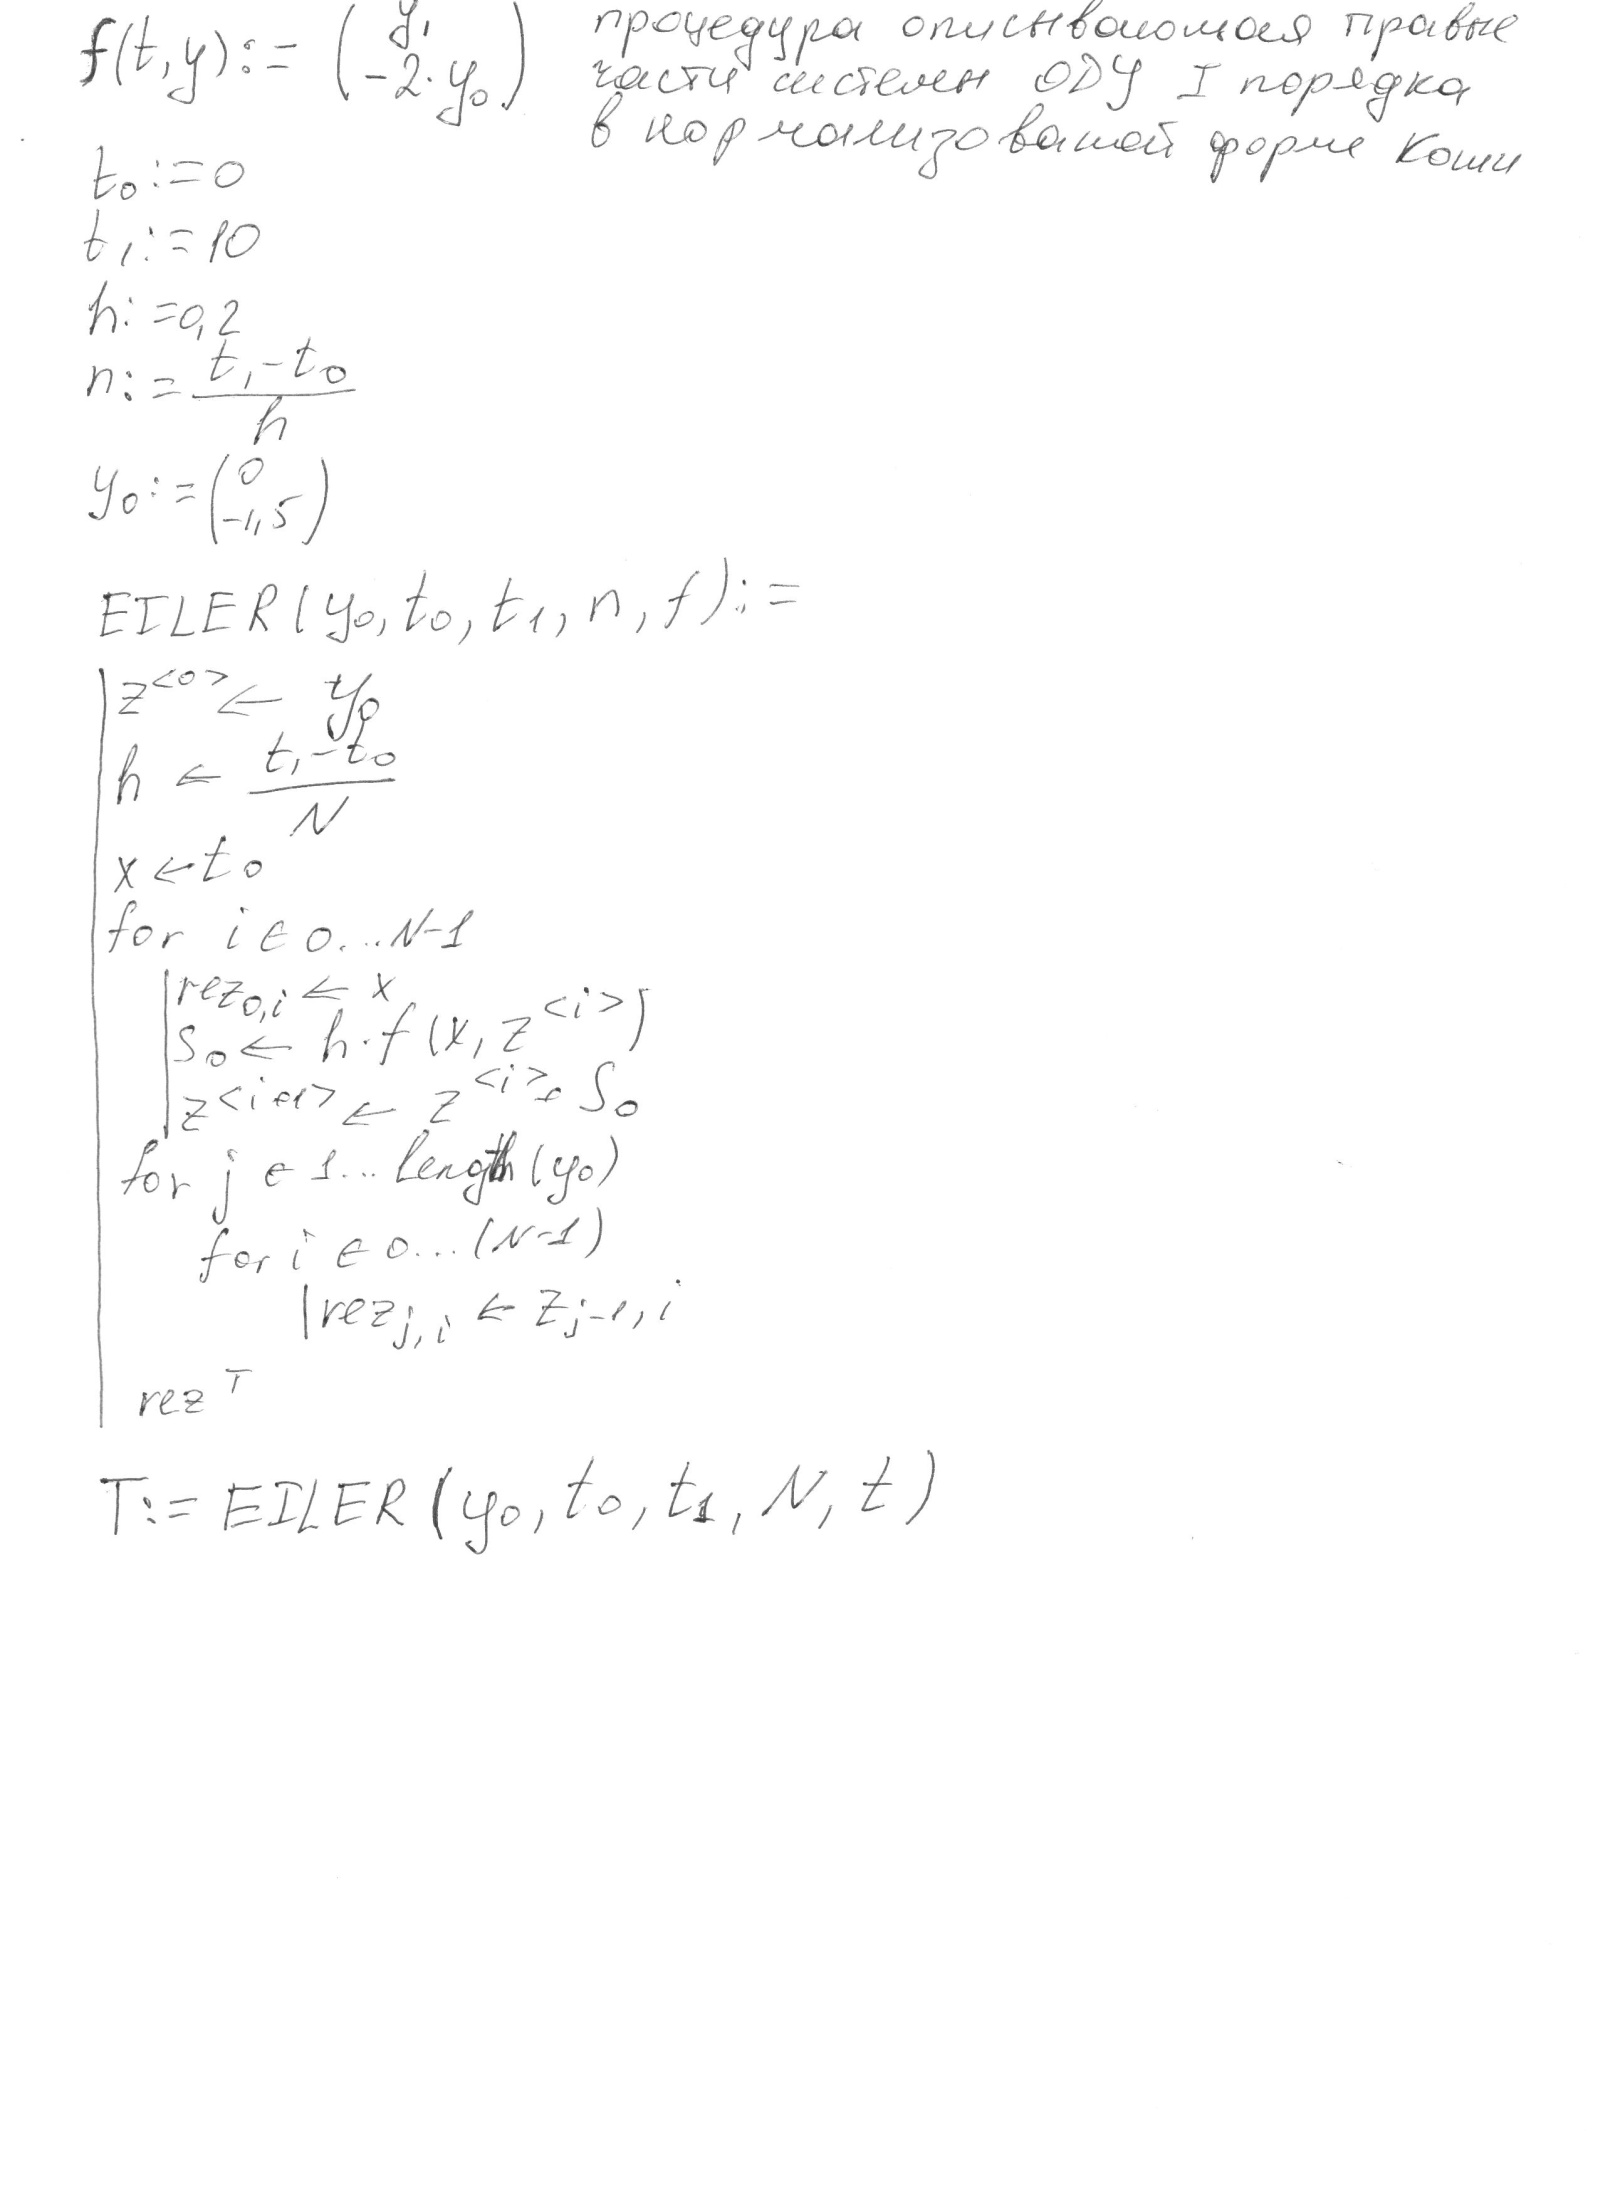 f(t,y):= (y₁
-2·y₀)
процедура описывающая правые
части системы ОДУ I порядка
в нормализованой форме Коши
t₀:=0
t₁:=10
h:=0,2
n:= (t₁-t₀)/h
y₀:= (0
-1,5)
EILER(y₀,t₀,t₁,n,f):=
z^<0> ← y₀
h ← (t₁-t₀)/N
x←t₀
for i∈0...N-1
rez₀,ᵢ ← x
S₀ ← h·f(x,z^<i>)
z^<i+1> ← z^<i>+S₀
for j∈1...length(y₀)
for i∈0...(N-1)
rez_j,i ← z_j-1,i
rez^T
T:=EILER(y₀,t₀,t₁,N,t)